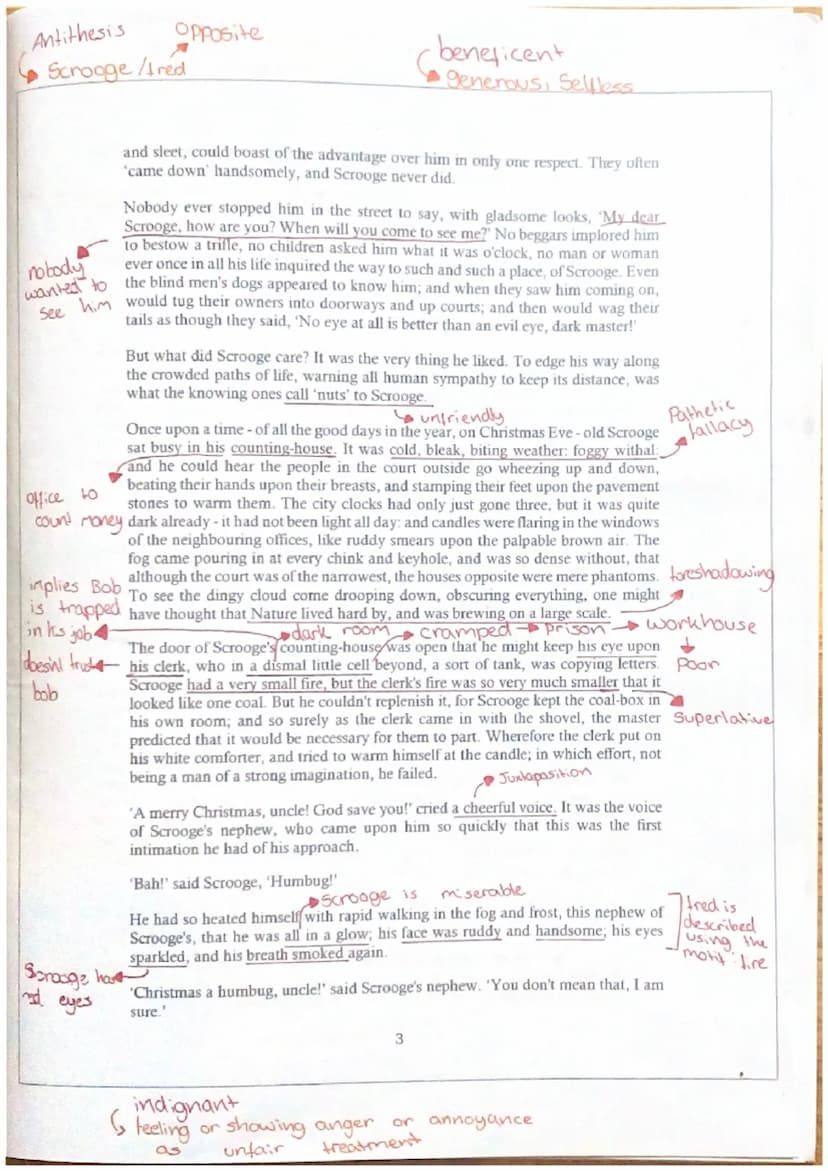 Antithesis
Opposite
Scrooge / fred
beneficent
generous, Selfless
and sleet, could boast of the advantage over him in only one respect. They often
'came down' handsomely, and Scrooge never did.
Nobody ever stopped him in the street to say, with gladsome looks, 'My dear
Scrooge, how are you? When will you come to see me?' No beggars implored him
to bestow a trifle, no children asked him what it was o'clock, no man or woman
ever once in all his life inquired the way to such and such a place, of Scrooge. Even
the blind men's dogs appeared to know him; and when they saw him coming on,
would tug their owners into doorways and up courts; and then would wag their
tails as though they said, 'No eye at all is better than an evil eye, dark master!'
nobody
wanted to
see him
But what did Scrooge care? It was the very thing he liked. To edge his way along
the crowded paths of life, warning all human sympathy to keep its distance, was
what the knowing ones call 'nuts' to Scrooge.
unfriendly
Pathetic
fallacy
Once upon a time - of all the good days in the year, on Christmas Eve - old Scrooge
sat busy in his counting-house. It was cold, bleak, biting weather: foggy withal:
and he could hear the people in the court outside go wheezing up and down,
beating their hands upon their breasts, and stamping their feet upon the pavement
stones to warm them. The city clocks had only just gone three, but it was quite
dark already - it had not been light all day: and candles were flaring in the windows
of the neighbouring offices, like ruddy smears upon the palpable brown air. The
fog came pouring in at every chink and keyhole, and was so dense without, that
although the court was of the narrowest, the houses opposite were mere phantoms.
To see the dingy cloud come drooping down, obscuring everything, one might
have thought that Nature lived hard by, and was brewing on a large scale.
office to
count money
foreshadowing
implies Bob
is trapped
in his job
dark room
cramped
prison
workhouse
Poor
The door of Scrooge's counting-house was open that he might keep his eye upon
his clerk, who in a dismal little cell beyond, a sort of tank, was copying letters.
Scrooge had a very small fire, but the clerk's fire was so very much smaller that it
looked like one coal. But he couldn't replenish it, for Scrooge kept the coal-box in
his own room; and so surely as the clerk came in with the shovel, the master
predicted that it would be necessary for them to part. Wherefore the clerk put on
his white comforter, and tried to warm himself at the candle; in which effort, not
being a man of a strong imagination, he failed.
doesn't trust
bob
Superlative
Juxtaposition
'A merry Christmas, uncle! God save you!' cried a cheerful voice. It was the voice
of Scrooge's nephew, who came upon him so quickly that this was the first
intimation he had of his approach.
'Bah!' said Scrooge, 'Humbug!'
Scrooge is miserable
He had so heated himself with rapid walking in the fog and frost, this nephew of
Scrooge's, that he was all in a glow; his face was ruddy and handsome; his eyes
sparkled, and his breath smoked again.
fred is
described
using the
motif: fire
Scrooge had
red eyes
'Christmas a humbug, uncle!' said Scrooge's nephew. 'You don't mean that, I am
sure.'
3
indignant
feeling or showing anger or annoyance
as unfair treatment